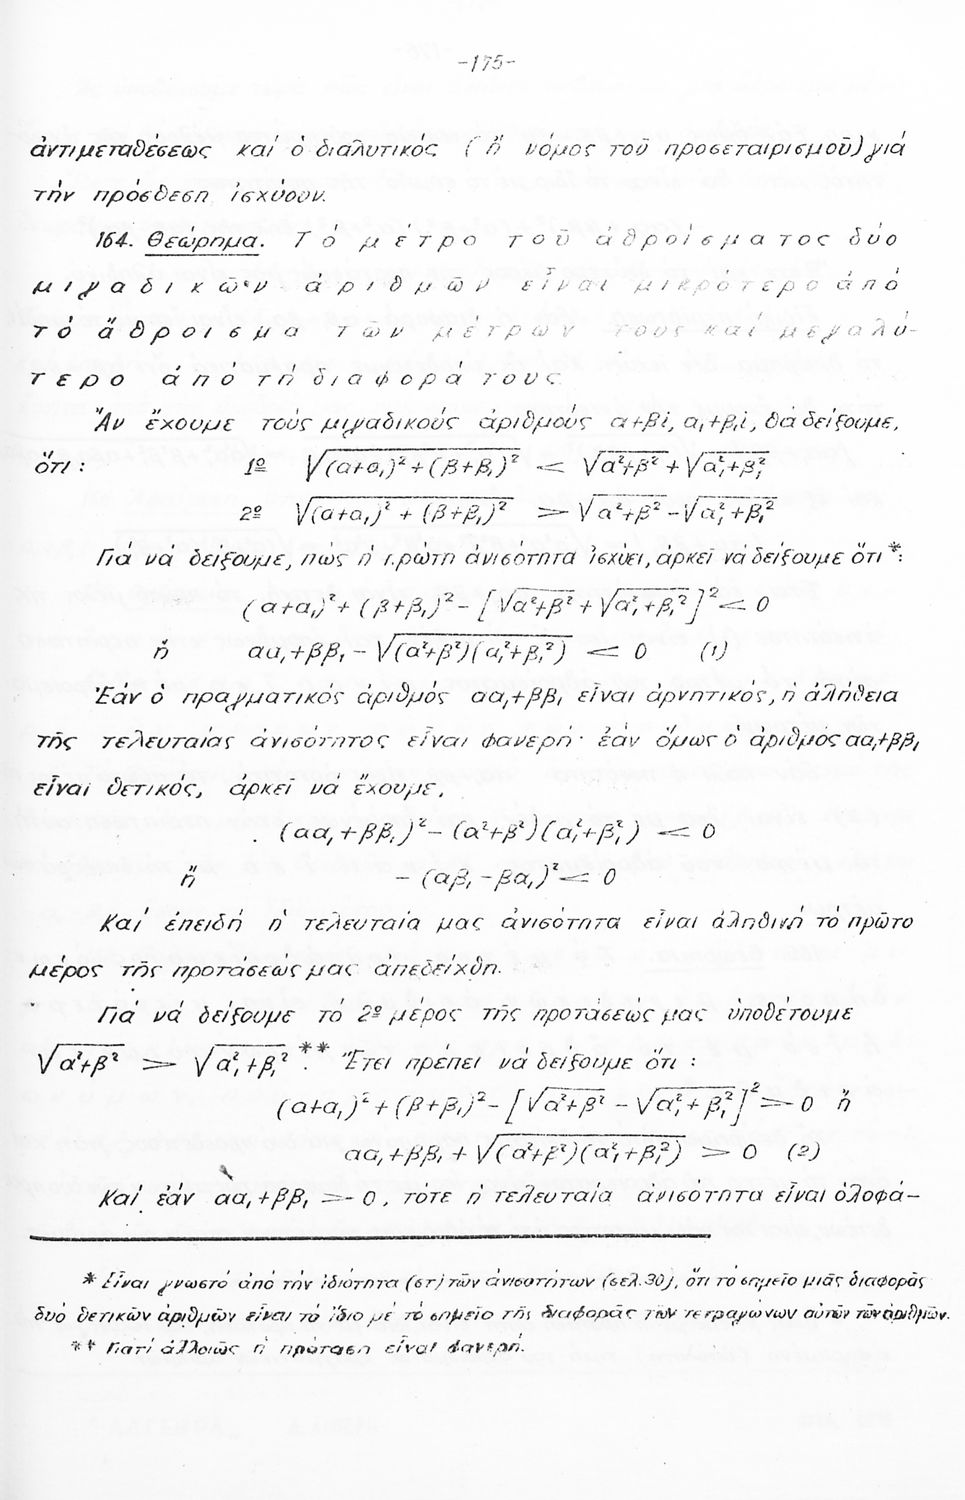 -175-
ἀντιμεταθέσεως καί ὁ διαλυτικός ( ἤ νόμος τοῦ προσεταιρισμοῦ) γιά
τήν πρόσθεση ἰσχύουν.
164. Θεώρημα. Τό μέτρο τοῦ ἀθροίσματος δύο
μιγαδικῶν ἀριθμῶν εἶναι μικρότερο ἀπό
τό ἄθροισμα τῶν μέτρων τους καί μεγαλύ-
τερο ἀπό τή διαφορά τους.
Ἄν ἔχουμε τούς μιγαδικούς ἀριθμούς α+βi, α₁+β₁i, θά δείξουμε,
ὅτι : 1º √(α+α₁)²+(β+β₁)² < √α²+β² + √α₁²+β₁²
2º √(α+α₁)² + (β+β₁)² > √α²+β² - √α₁²+β₁²
Γιά νά δείξουμε, πώς ἡ πρώτη ἀνισότητα ἰσχύει, ἀρκεῖ νά δείξουμε ὅτι *:
(α+α₁)² + (β+β₁)² - [√α²+β² + √α₁²+β₁²]² < 0
ἤ αα₁+ββ₁ - √(α²+β²)(α₁²+β₁²) < 0 (1)
Ἐάν ὁ πραγματικός ἀριθμός αα₁+ββ₁ εἶναι ἀρνητικός, ἡ ἀλήθεια
τῆς τελευταίας ἀνισότητος εἶναι φανερή· ἐάν ὅμως ὁ ἀριθμός αα₁+ββ₁
εἶναι θετικός, ἀρκεῖ νά ἔχουμε,
(αα₁+ββ₁)² - (α²+β²)(α₁²+β₁²) < 0
ἤ - (αβ₁ - βα₁)² < 0
Καί ἐπειδή ἡ τελευταία μας ἀνισότητα εἶναι ἀληθινή τό πρῶτο
μέρος τῆς προτάσεώς μας ἀπεδείχθη.
Γιά νά δείξουμε τό 2º μέρος τῆς προτάσεώς μας ὑποθέτουμε
√α²+β² > √α₁²+β₁² .** Ἔτσι πρέπει νά δείξουμε ὅτι :
(α+α₁)² + (β+β₁)² - [√α²+β² - √α₁²+β₁²]² > 0 ἤ
αα₁+ββ₁ + √(α²+β²)(α₁²+β₁²) > 0 (2)
Καί ἐάν αα₁+ββ₁ > 0, τότε ἡ τελευταία ἀνισότητα εἶναι ὁλοφά-
* Εἶναι γνωστό ἀπό τήν ἰδιότητα (στ) τῶν ἀνισοτήτων (σελ.30), ὅτι τό σημεῖο μιᾶς διαφορᾶς
δυό θετικῶν ἀριθμῶν εἶναι τό ἴδιο μέ τό σημεῖο τῆς διαφορᾶς τῶν τετραγώνων αὐτῶν τῶν ἀριθμῶν.
** Γιατί ἀλλοιῶς ἡ πρόταση εἶναι φανερή.